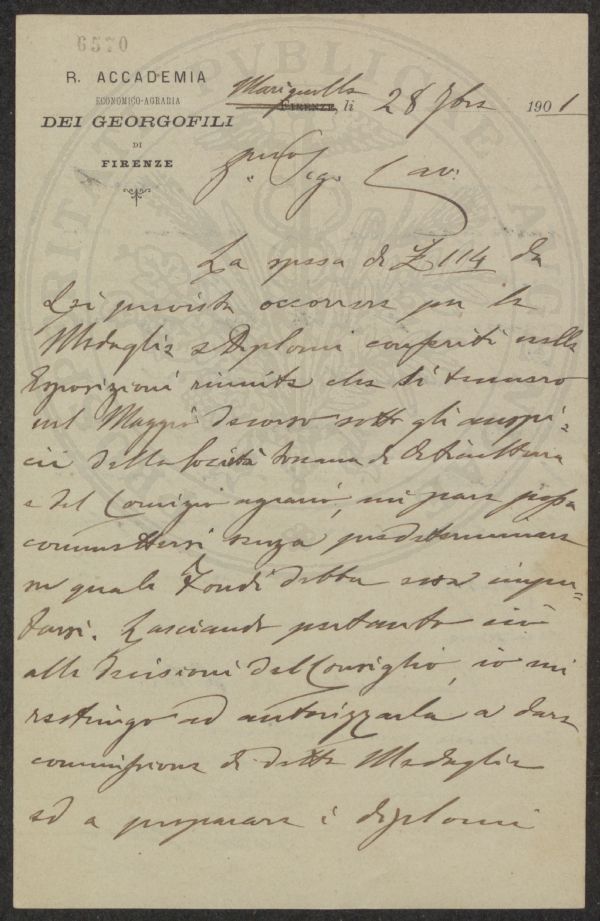 6570
R. ACCADEMIA
ECONOMICO-AGRARIA
DEI GEORGOFILI
DI
FIRENZE
Marignolle
FIRENZE, li 28 7bre 1901
Sig. Cav.
La spesa di £ 114 da
Lei prevista occorrere per le
Medaglie e Diplomi conferiti nelle
Esposizioni riunite che si tennero
nel Maggio decorso sotto gli auspi=
cii della Società toscana di Orticultura
e del Comizio agrario, mi pare possa
commettersi senza predeterminare
su quale Fondi debba essa impu=
tarsi. Lasciando pertanto ciò
alle decisioni del Consiglio, io mi
restringo ad autorizzarla a dare
commissione di dette Medaglie
ed a preparare i diplomi